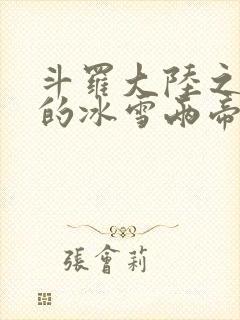 斗羅大陸之
的冰雪兩帝
張會莉